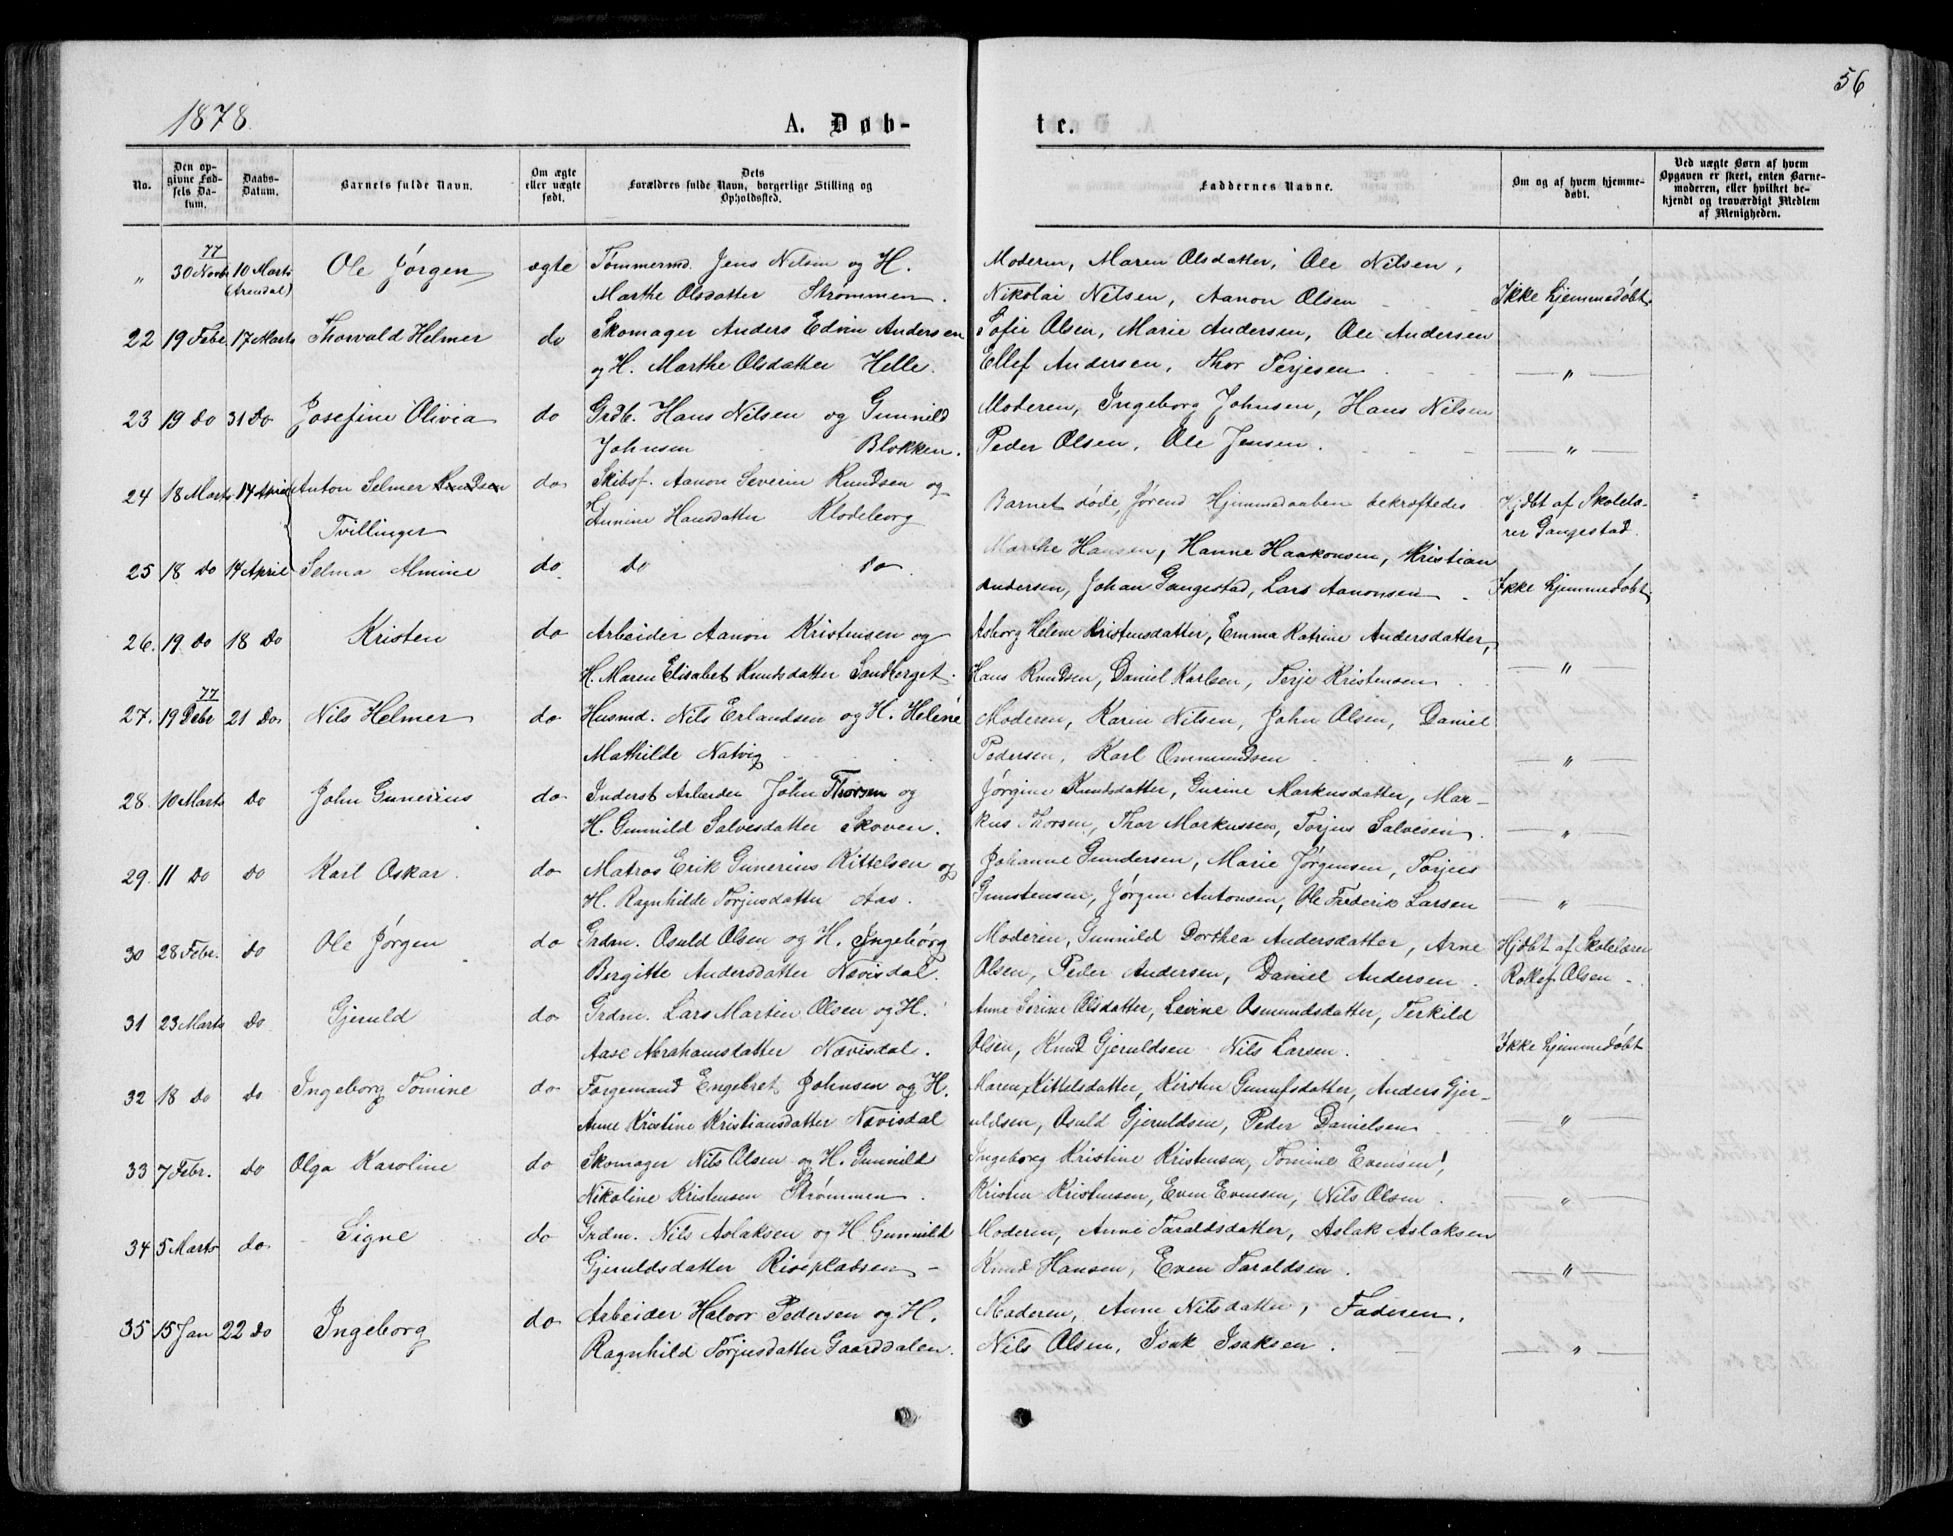 1878.
56
A. Døb-
te.
No.
Den op-
givne Fød-
sels Da-
tum.
Daabs-
Datum.
Barnets fulde Navn.
Om ægte
eller uægte
født.
Dets
Forældres fulde Navn, borgerlige Stilling og
Opholdssted.
Faddernes Navne.
Om og af hvem hjemme-
døbt.
Ved uægte Børn af hvem
Opgaven er skeet, enten Barne-
moderen, eller hvilket be-
kjendt og troværdigt Medlem
af Menigheden.
77
" 30 Novb 10 Marts Ole Jørgen ægte Tømmermd. Jens Nilsen og H. Moderen, Maren Olsdatter, Ole Nilsen,
(Arendal) Marthe Olsdatter Strømmen. Nikolai Nilsen, Aanon Olsen Ikke hjemmedøbt.
22 19 Febr. 17 Marts Thorvald Helmer do Skomager Anders Edvin Andersen Sofie Olsen, Marie Andersen, Ole Andersen
og H. Marthe Olsdatter Helle. Ellef Andersen, Thor Terjesen — " —
23 19 do 31 Do Josefine Olivia do Grdb. Hans Nilsen og Gunnild Moderen, Ingeborg Johnsen, Hans Nilsen
Johnsen Blokken. Peder Olsen, Ole Jensen. — " —
24 18 Marts 14 April Anton Selmer Knudsen do Skibsf. Aanon Severin Knudsen og Barnet døde førend Hjemmedaaben bekræftedes Hjdbt af Skolelæ-
Tvillinger H. Annine Hansdatter Klodeborg rer Gangestad.
25 18 Do 14 April Selma Almine do do do Marthe Hansen, Hanne Haakonsen, Kristian
Andersen, Johan Gangestad, Lars Aanonsen. Ikke hjemmedøbt.
26. 19 Do 18 Do Kristen do Arbeider Aanon Kristensen og Asborg Helene Kristensdatter, Emma Katrine Andersdatter,
H. Maren Elisabet Knutsdatter Sandberget. Hans Knudsen, Daniel Karlsen, Terje Kristensen. — " —
77
27. 19 Debr 21 Do Nils Helmer do Husmd. Nils Erlandsen og H. Helene Moderen, Karin Nilsen, John Olsen, Daniel
Mathilde Natvig Pedersen, Karl Ommundsen — " —
28. 10 Marts Do John Gunerius do Inderst Arbeider John Thorsen og Jørgine Knutsdatter, Gurine Markusdatter, Mar-
H. Gunnild Salvesdatter Skoven. kus Thorsen, Thor Markussen, Torjus Salvesen. — " —
29. 11 Do Do Karl Oskar. do Matros Erik Gunerius Kittelsen og Johanne Gundersen, Marie Jørgensen, Torjus
H. Ragnhilde Torjusdatter Aas. Gunstensen, Jørgen Antonsen, Ole Frederik Larsen — " —
30 28 Febr. do Ole Jørgen do Grdm. Osuld Olsen og H. Ingebórg Moderen, Gunnild Dorthea Andersdatter, Arne Hjdbt af Skolelærer
Borgitte Andersdatter Nævisdal. Olsen, Peder Andersen, Daniel Andersen. Rollef Olsen -
31 23 Marts Do Gjeruld do Grdm. Lars Martin Olsen og H. Anne Serine Olsdatter, Levine Osmundsdatter, Terkild
Aase Abrahamsdatter Nævisdal. Olsen, Knud Gjeruldsen Nils Larsen. Ikke hjemmedøbt
32 18 Do Do Ingeborg Tomine do Forgemand Engebret Johnsen og H. Maren Kittelsdatter, Kirsten Gunufsdatter, Anders Gjer-
Anne Kristine Kristiansdatter Nævisdal uldsen, Osuld Gjeruldsen, Peder Danielsen. — " —
33 7 Febr. do Olga Karoline do Skomager Nils Olsen og H. Gunnild Ingeborg Kristine Kristensen, Tomine Evensen,
Nikoline Kristensen Strømmen. Kristen Kristensen, Even Evensen, Nils Olsen. — " —
34 5 Marts do Signe do Grdm. Nils Aslaksen og H. Gunnild Moderen, Anne Taraldsdatter, Aslak Aslaksen
Gjeruldsdatter Risepladsen - Knud Hansen, Even Taraldsen. — " —
35 15 Jan 22 do Ingeborg do Arbeider Halvor Pedersen og H. Moderen, Anne Nilsdatter, Faderen,
Ragnhild Torjusdatter Gaarddalen. Nils Olsen, Isak Isaksen. — " —